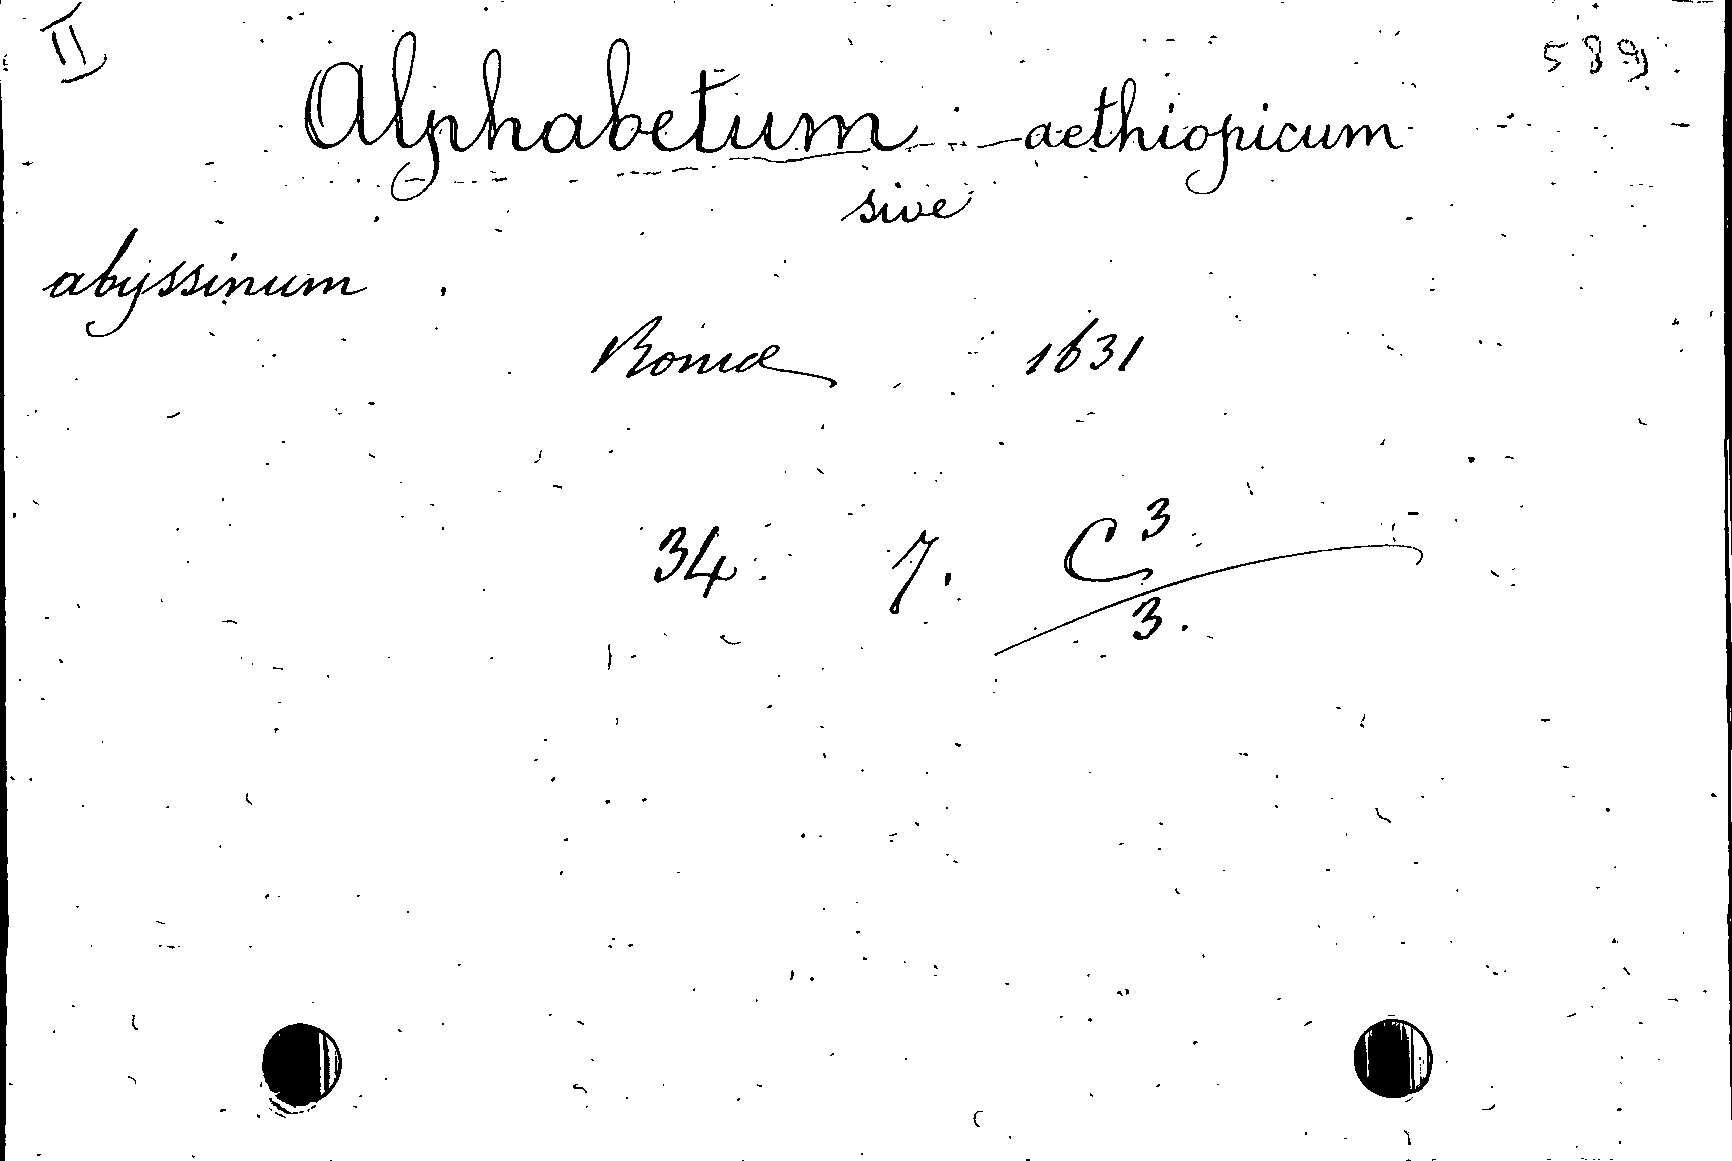 II
589
Alphabetum aethiopicum
sive
abyssinum.
Romae 1631
34. 7. C³
3.